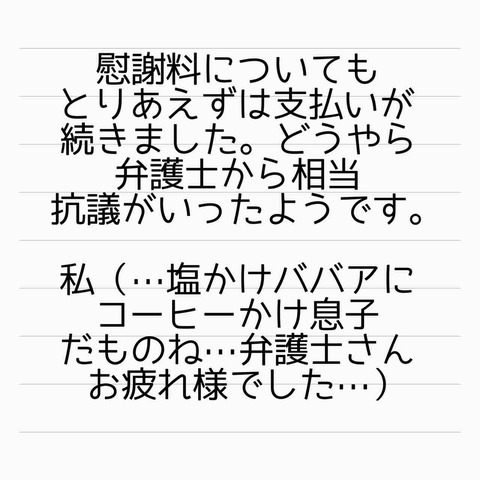 慰謝料についても
とりあえずは支払いが
続きました。どうやら
弁護士から相当
抗議がいったようです。
私（…塩かけババアに
コーヒーかけ息子
だものね…弁護士さん
お疲れ様でした…）